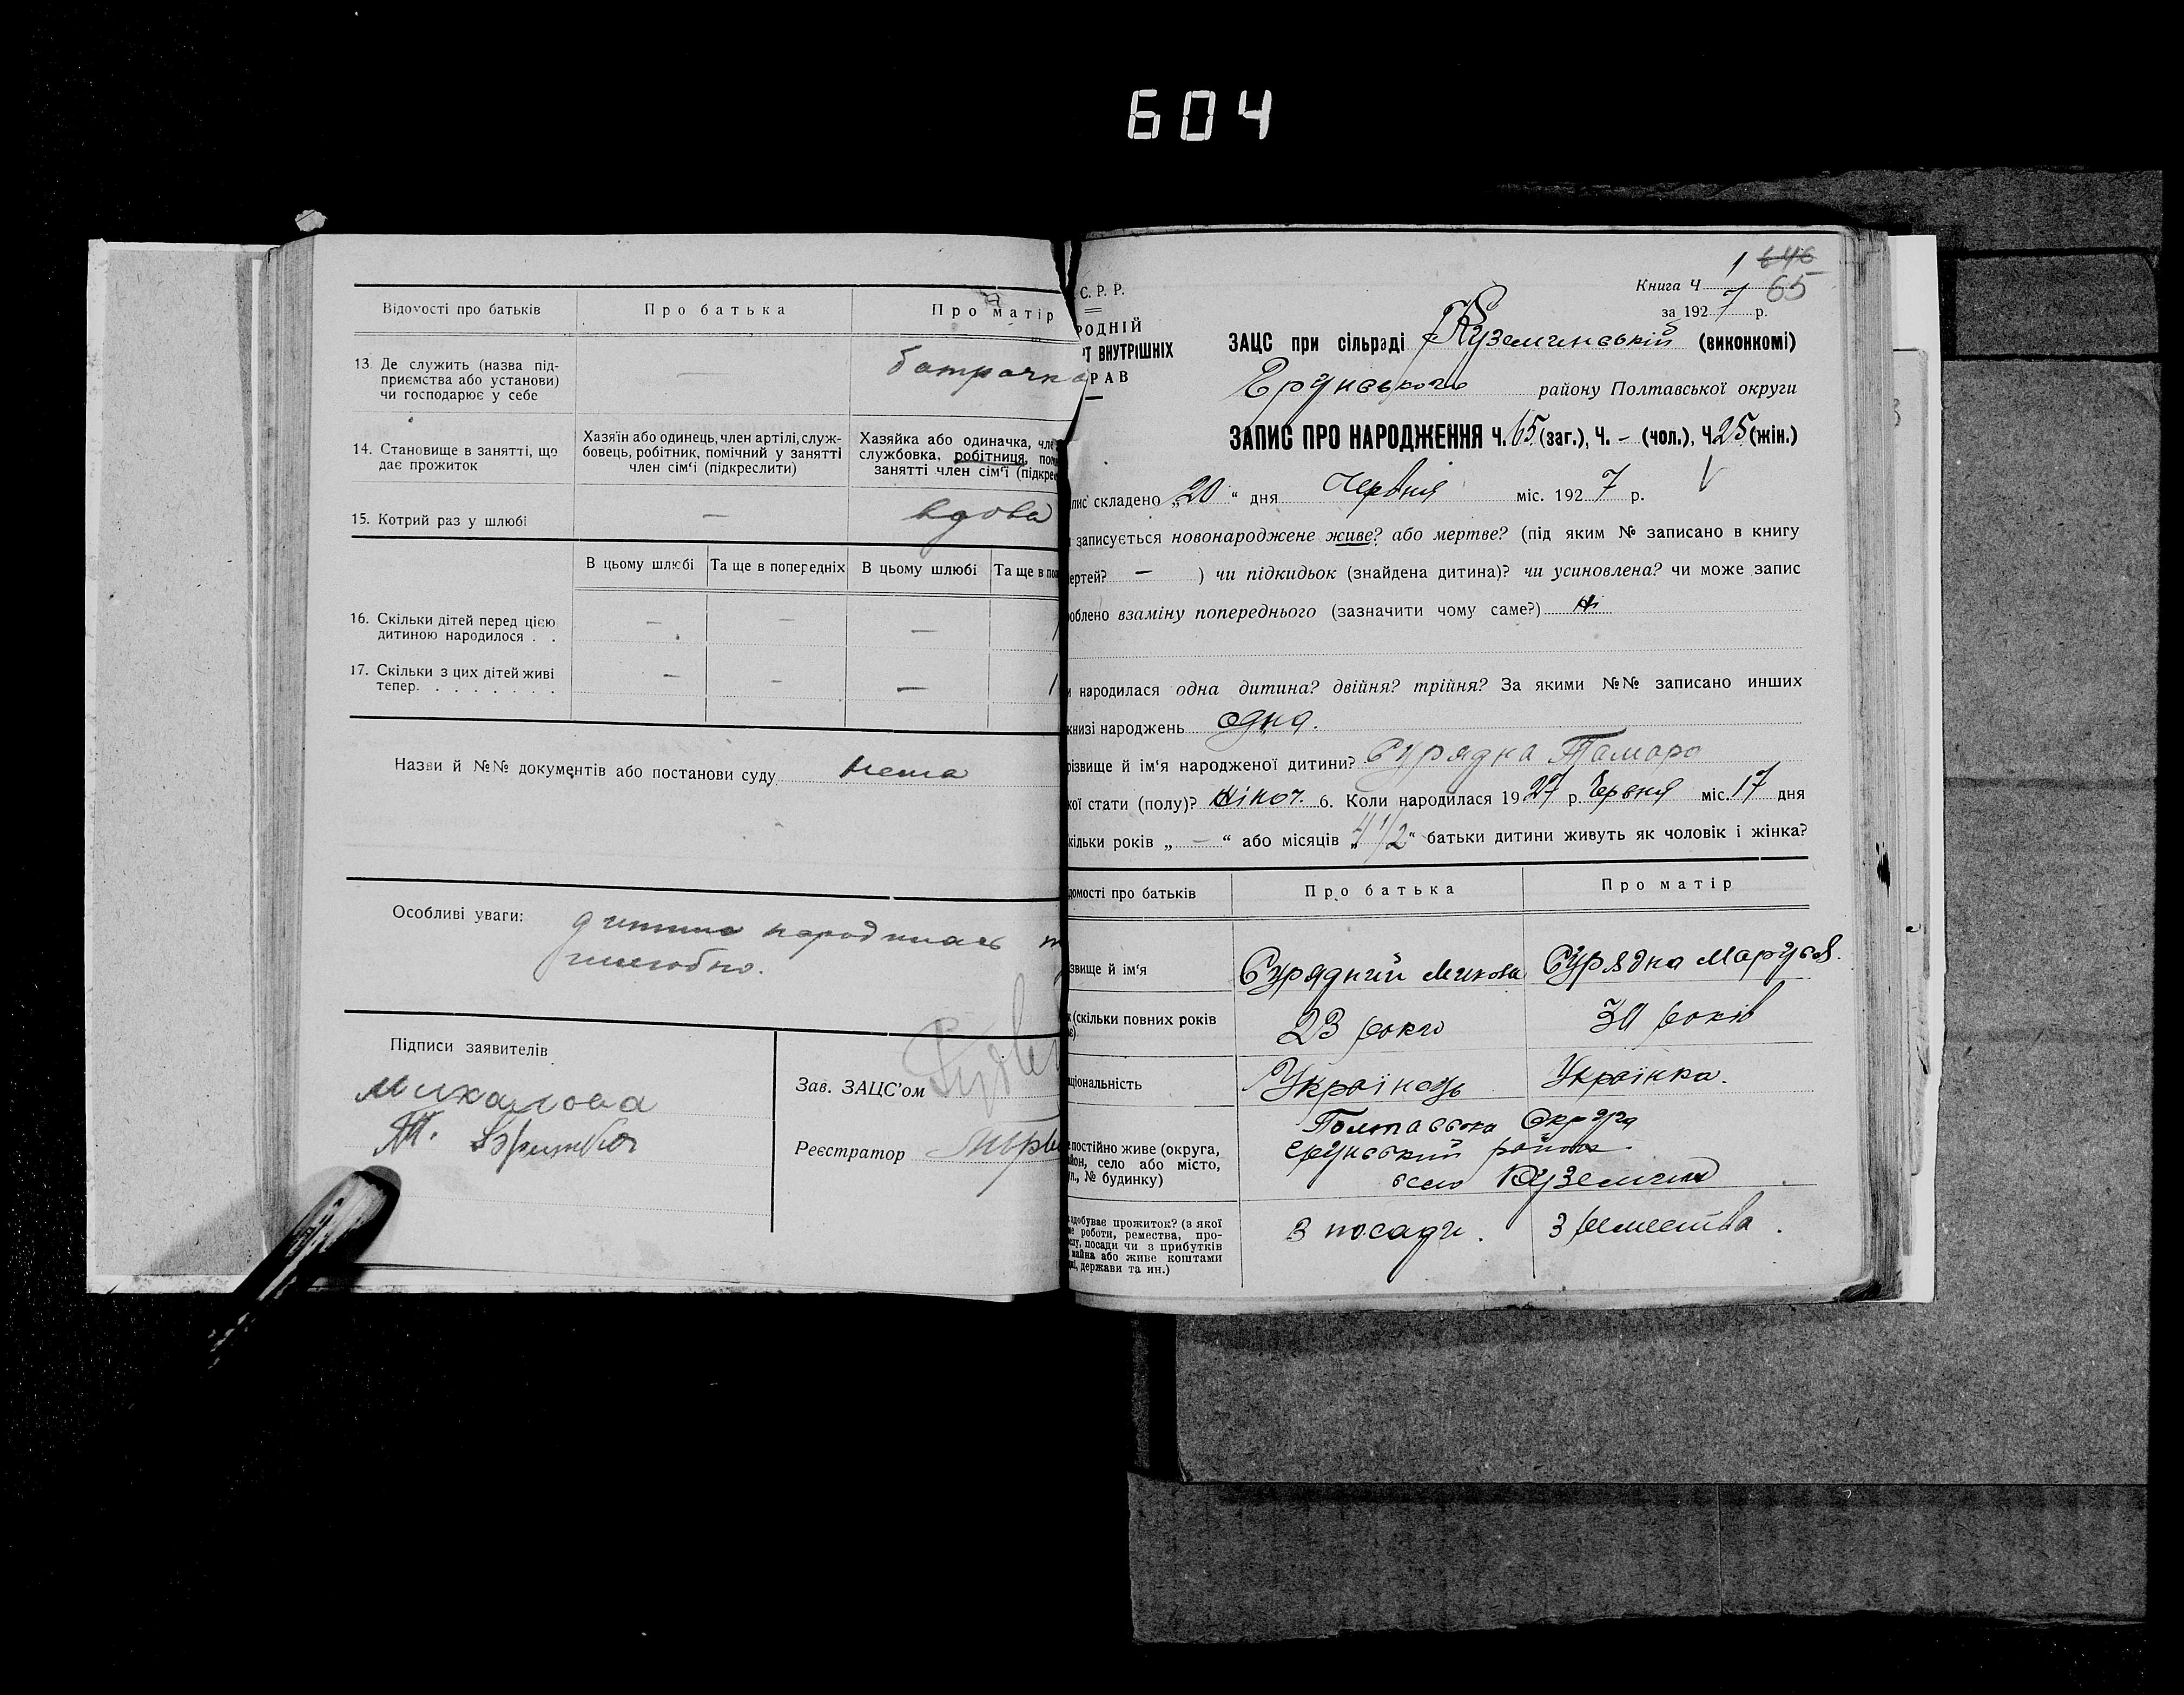 604
Відомості про батьків
Про батька
Про матір
13. Де служить (назва під-
приємства або установи)
чи господарює у себе
—
батрачка
14. Становище в занятті, що
дає прожиток
Хазяїн або одинець, член артілі, служ-
бовець, робітник, помічний у занятті
член сім'ї (підкреслити)
Хазяйка або одиначка, чле
службовка, робітниця, пом
занятті член сім'ї (підкрес
15. Котрий раз у шлюбі
—
вдова
В цьому шлюбі
Та ще в попередніх
В цьому шлюбі
Та ще в поп
16. Скільки дітей перед цією
дитиною народилося . .
— — — 1
17. Скільки з цих дітей живі
тепер. . . . . . . .
— — — 1
Назви й №№ документів або постанови суду нема
Особливі уваги: дитина народилась
Підписи заявителів
Михайлова
Зав. ЗАЦС'ом
Реєстратор
С. Р. Р.
РОДНІЙ
Т ВНУТРІШНІХ
РАВ
1 646
Книга Ч. 65
за 1927 р.
ЗАЦС при сільраді Куземинській (виконкомі)
Єрунського району Полтавської округи
ЗАПИС ПРО НАРОДЖЕННЯ Ч. 65 (заг.), Ч. - (чол.), Ч 25 (жін.)
пис складено „20" дня Червня міс. 1927 р.
записується новонароджене живе? або мертве? (під яким № записано в книгу
ертей? — ) чи підкидьок (знайдена дитина)? чи усиновлена? чи може запис
облено взаміну попереднього (зазначити чому саме?) ні
народилася одна дитина? двійня? трійня? За якими №№ записано инших
книзі народжень одна.
різвище й ім'я народженої дитини? Сурядна Тамара
кої стати (полу)? жіноч. 6. Коли народилася 1927 р. Червня міс. 17 дня
кільки років „—" або місяців „4 1/2" батьки дитини живуть як чоловік і жінка?
домості про батьків
Про батька
Про матір
звище й ім'я
Сурядний Микола
Сурядна Маруся.
к (скільки повних років
23 роки
30 років
аціональність
Українець
Українка.
постійно живе (округа,
йон, село або місто,
ул., № будинку)
Полтавська Округа
Єрунський район
село Куземин
здобуває прожиток? (з якої
ме роботи, ремества, про-
слу, посади чи з прибутків
майна або живе коштами
ції, держави та ин.)
З посади.
З ремества.